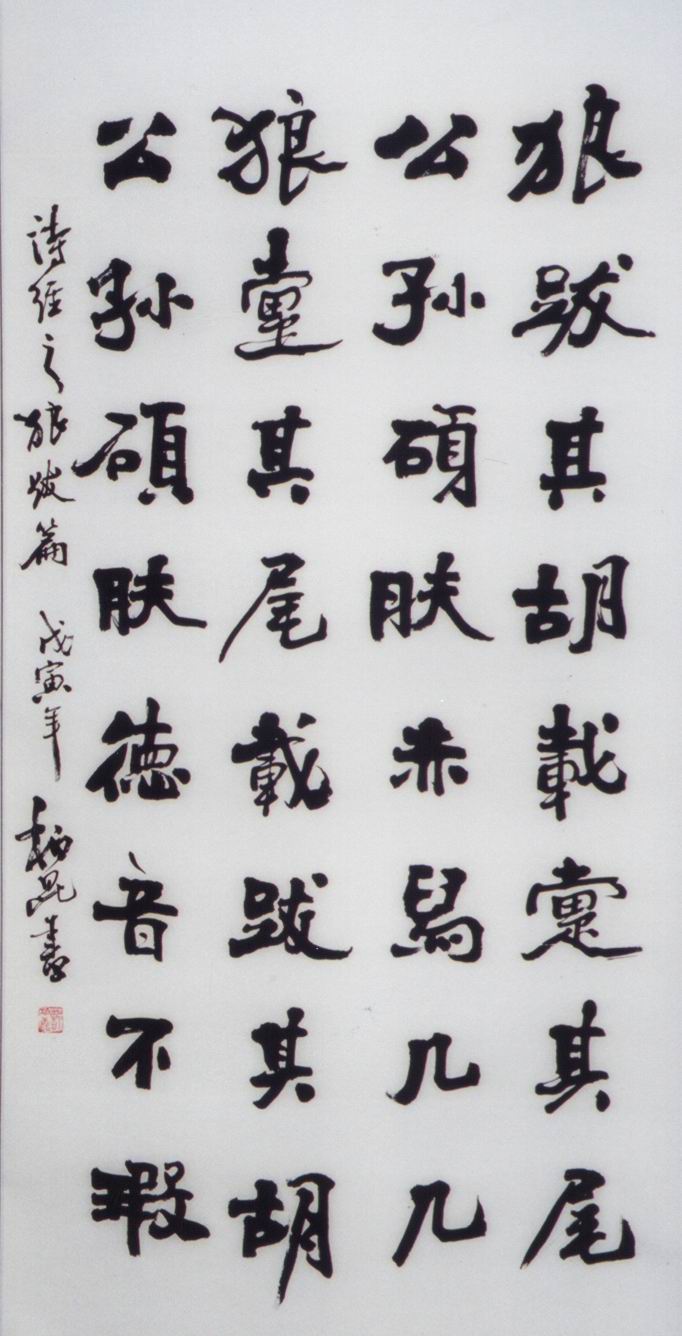 狼跋其胡載疐其尾
公孙碩肤赤舄几几
狼疐其尾載跋其胡
公孙碩肤德音不瑕
詩經之狼跋篇 戊寅年